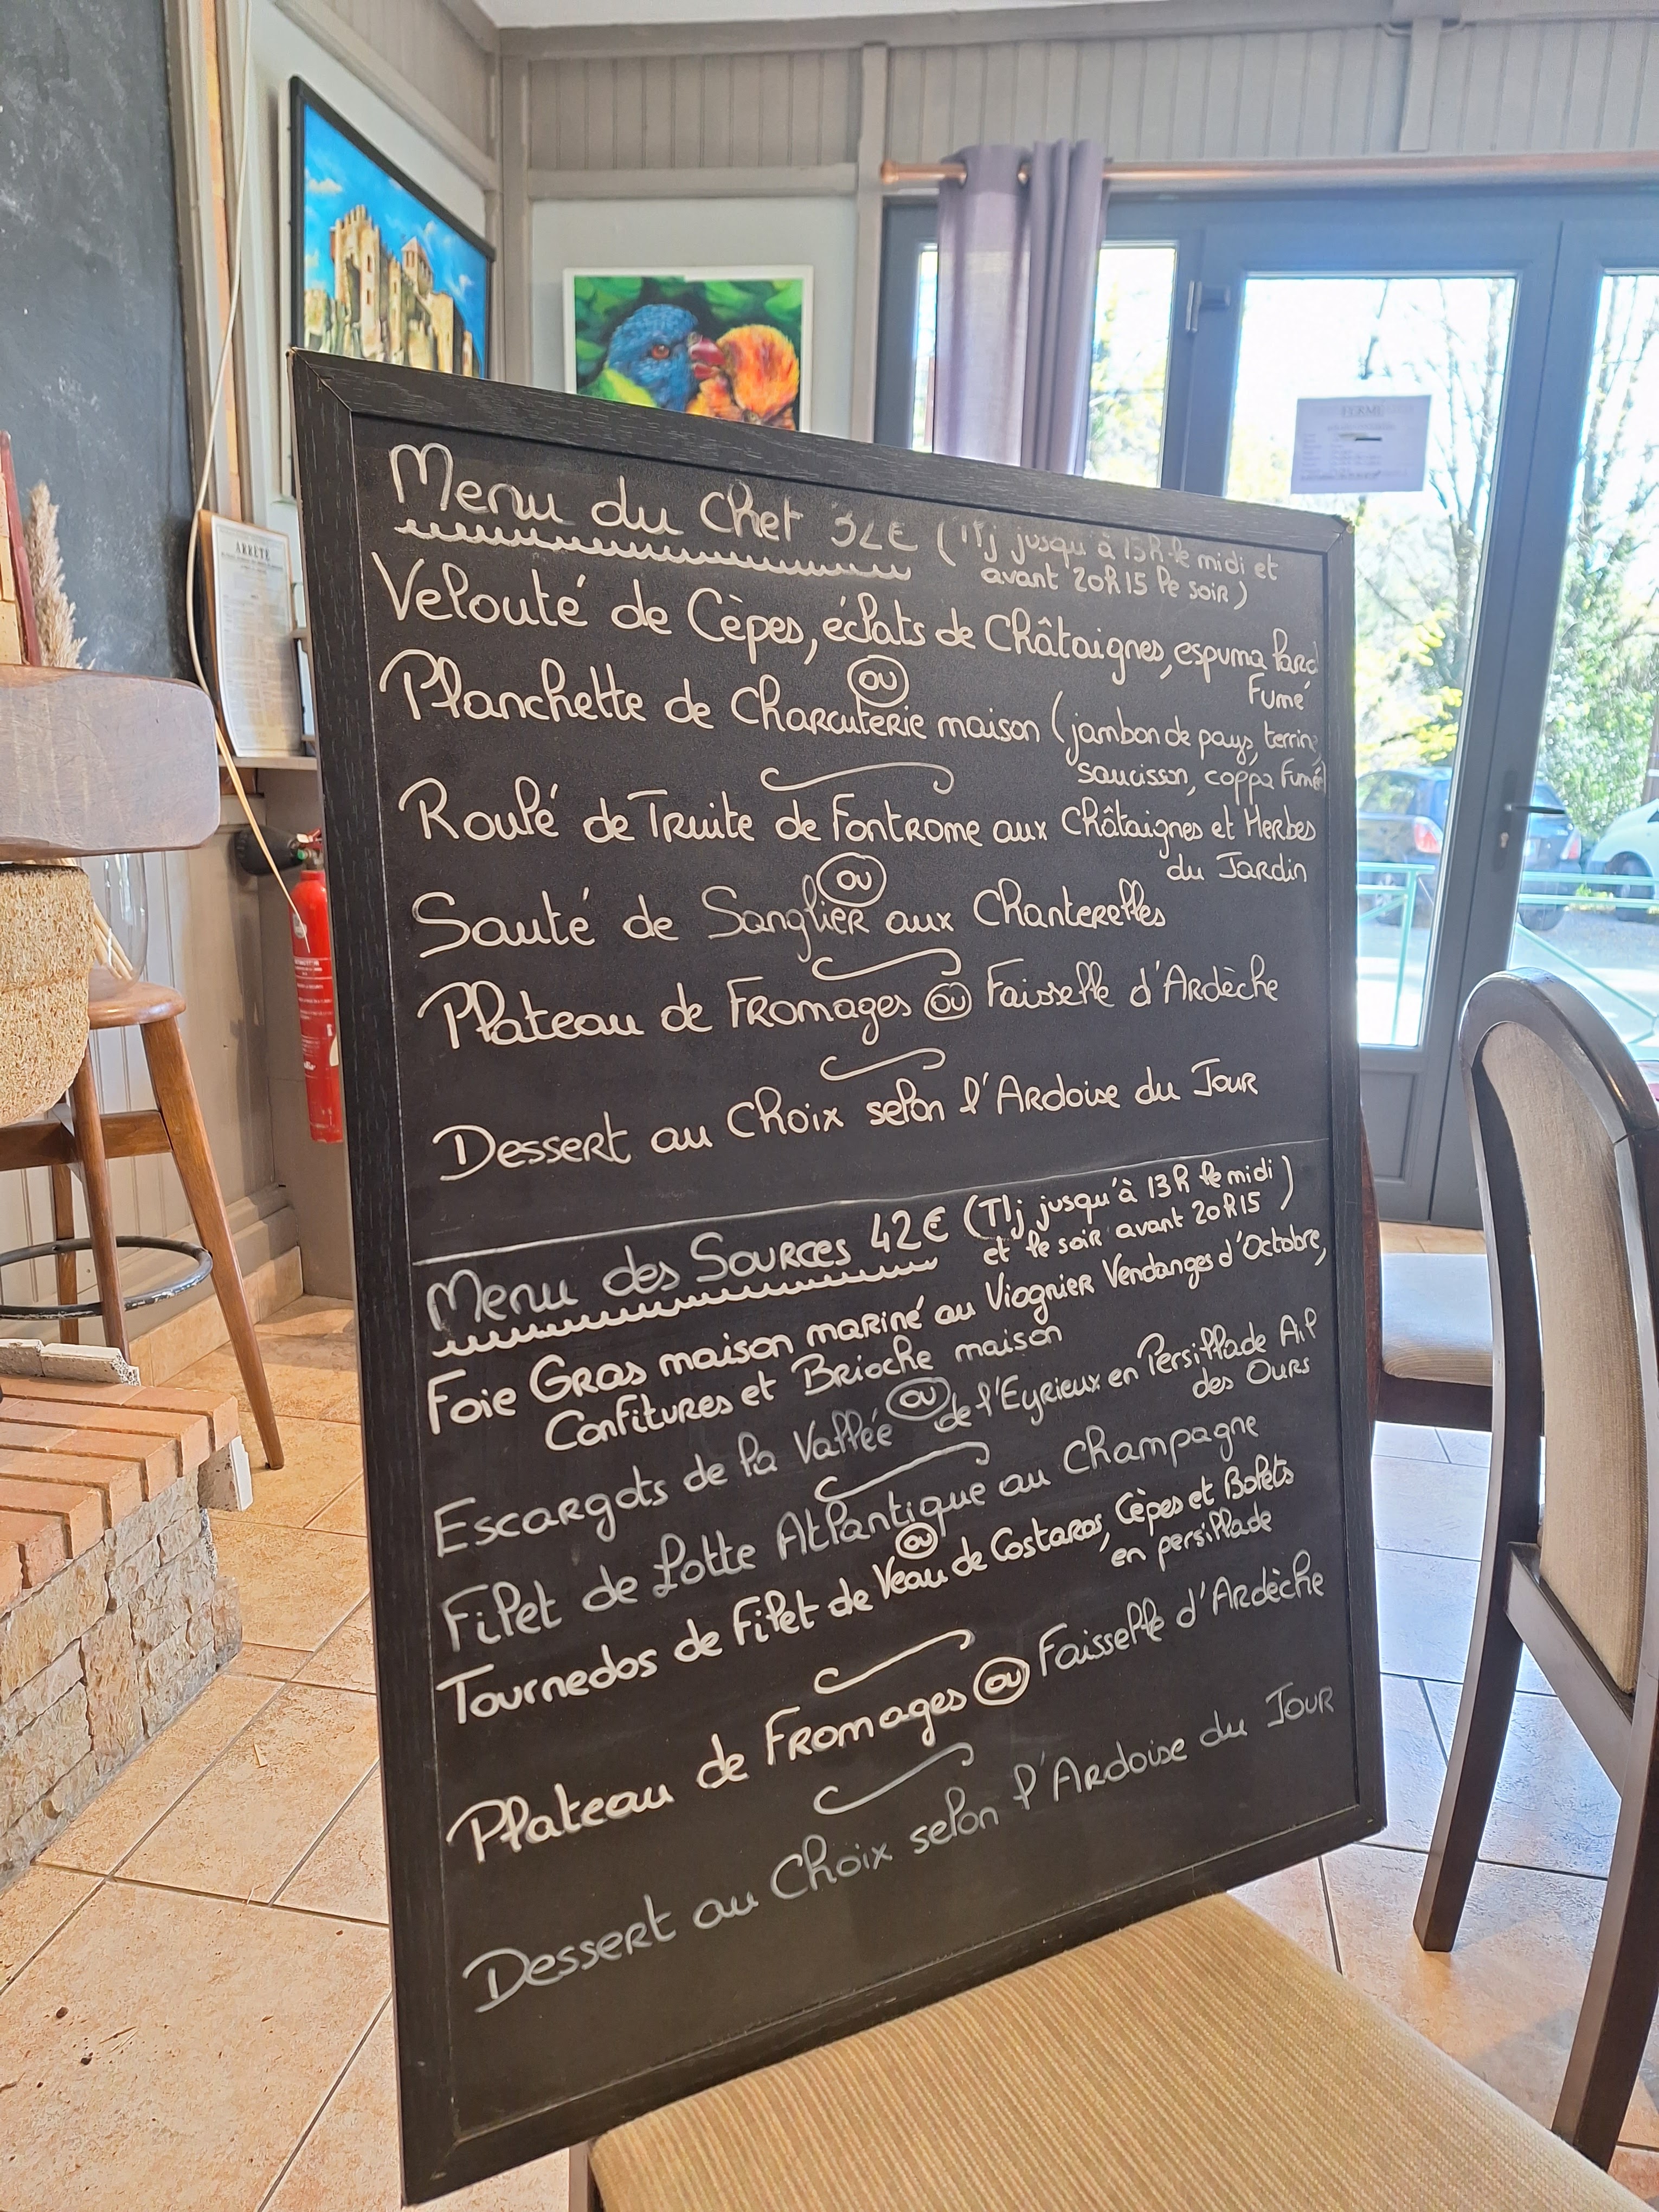 ARRÊTÉ
FERMÉ
Menu du Chef 32€ (T1j jusqu'à 13h le midi et
avant 20h15 le soir)
Velouté de Cèpes, éclats de Châtaignes, espuma Lard
Fumé
OU
Planchette de Charcuterie maison (jambon de pays, terrine,
saucisson, coppa Fumée)
Roulé de Truite de Fontrome aux Châtaignes et Herbes
du Jardin
OU
Sauté de Sanglier aux Chanterelles
Plateau de Fromages OU Faisselle d'Ardèche
Dessert au Choix selon l'Ardoise du Jour
Menu des Sources 42€ (T1j jusqu'à 13h le midi
et le soir avant 20h15)
Foie Gras maison mariné au Viognier Vendanges d'Octobre,
Confitures et Brioche maison
OU
Escargots de la Vallée de l'Eyrieux en Persillade Ail
des Ours
Filet de Lotte Atlantique au Champagne
OU
Tournedos de Filet de Veau de Costaros, Cèpes et Bolets
en persillade
Plateau de Fromages OU Faisselle d'Ardèche
Dessert au Choix selon l'Ardoise du Jour